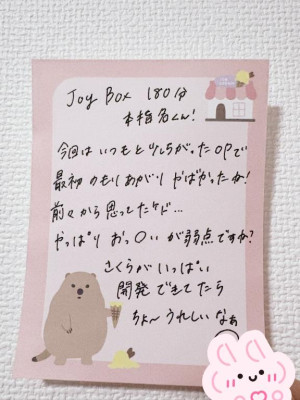 Joy Box 180分
本指名くん!
今回はいつもと少しちがったopで
最初のもりあがり やばかったか!
前々から思ってたケド…
やっぱり おっ〇い が弱点ですか?
さくらがいっぱい
開発できてたら
ちょ〜うれしいなぁ